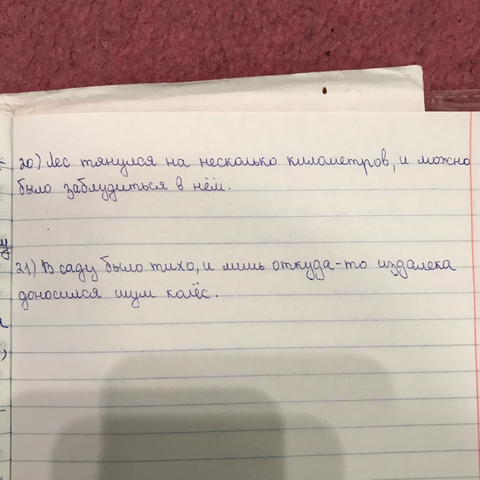 20) Лес тянулся на несколько километров, и можно
было заблудиться в нём.
21) В саду было тихо, и лишь откуда-то издалека
доносился шум колёс.